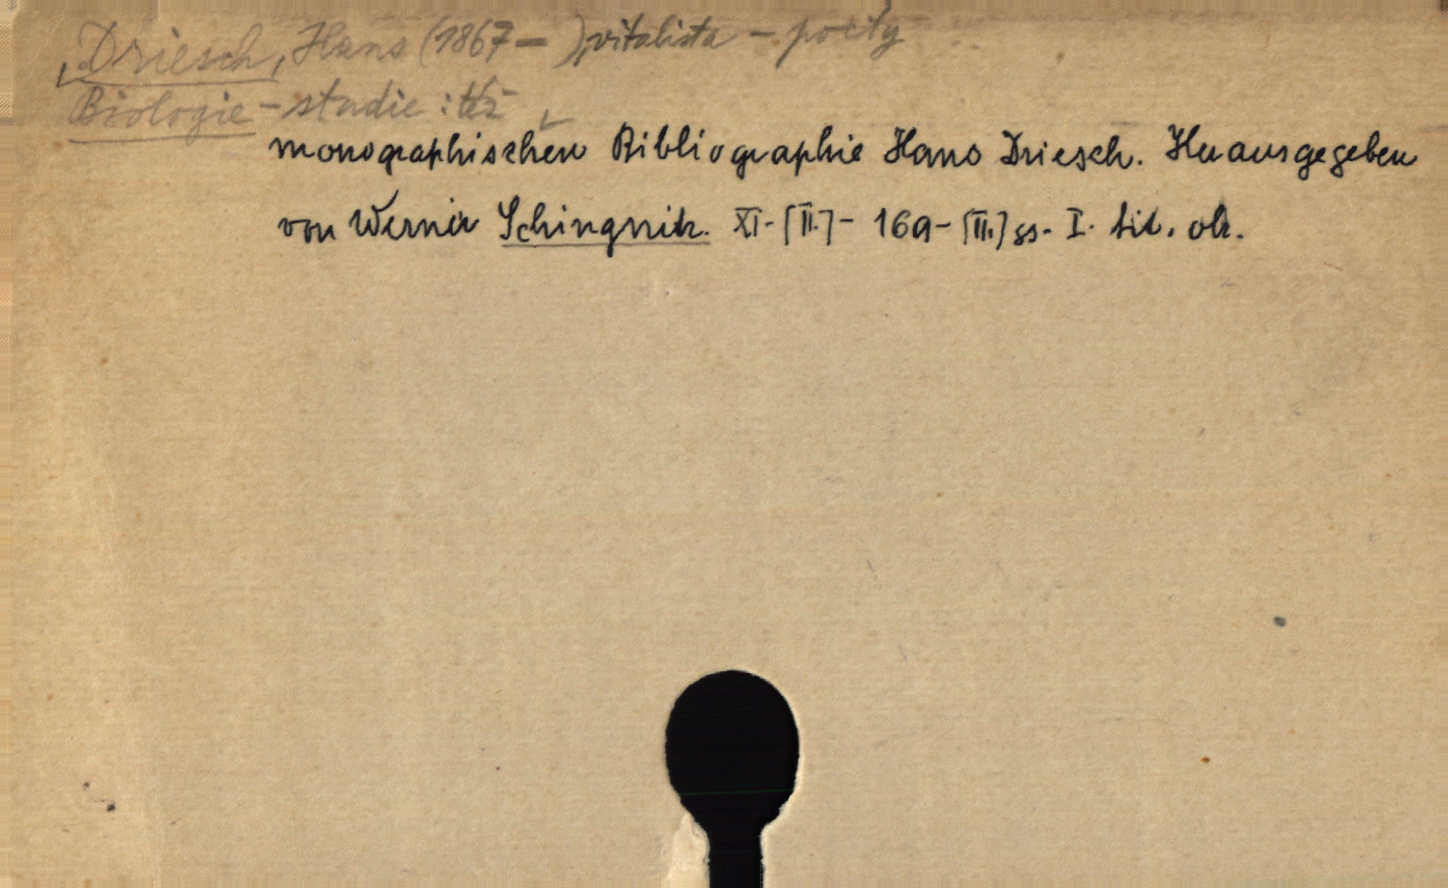 Driesch, Hans (1867 – ), vitalista – pocty
Biologie – studie :
monographischen Bibliographie Hans Driesch. Herausgegeben
von Werner Schingnitz. XI-[II.]- 169-[III.] ss. I. tit. obr.